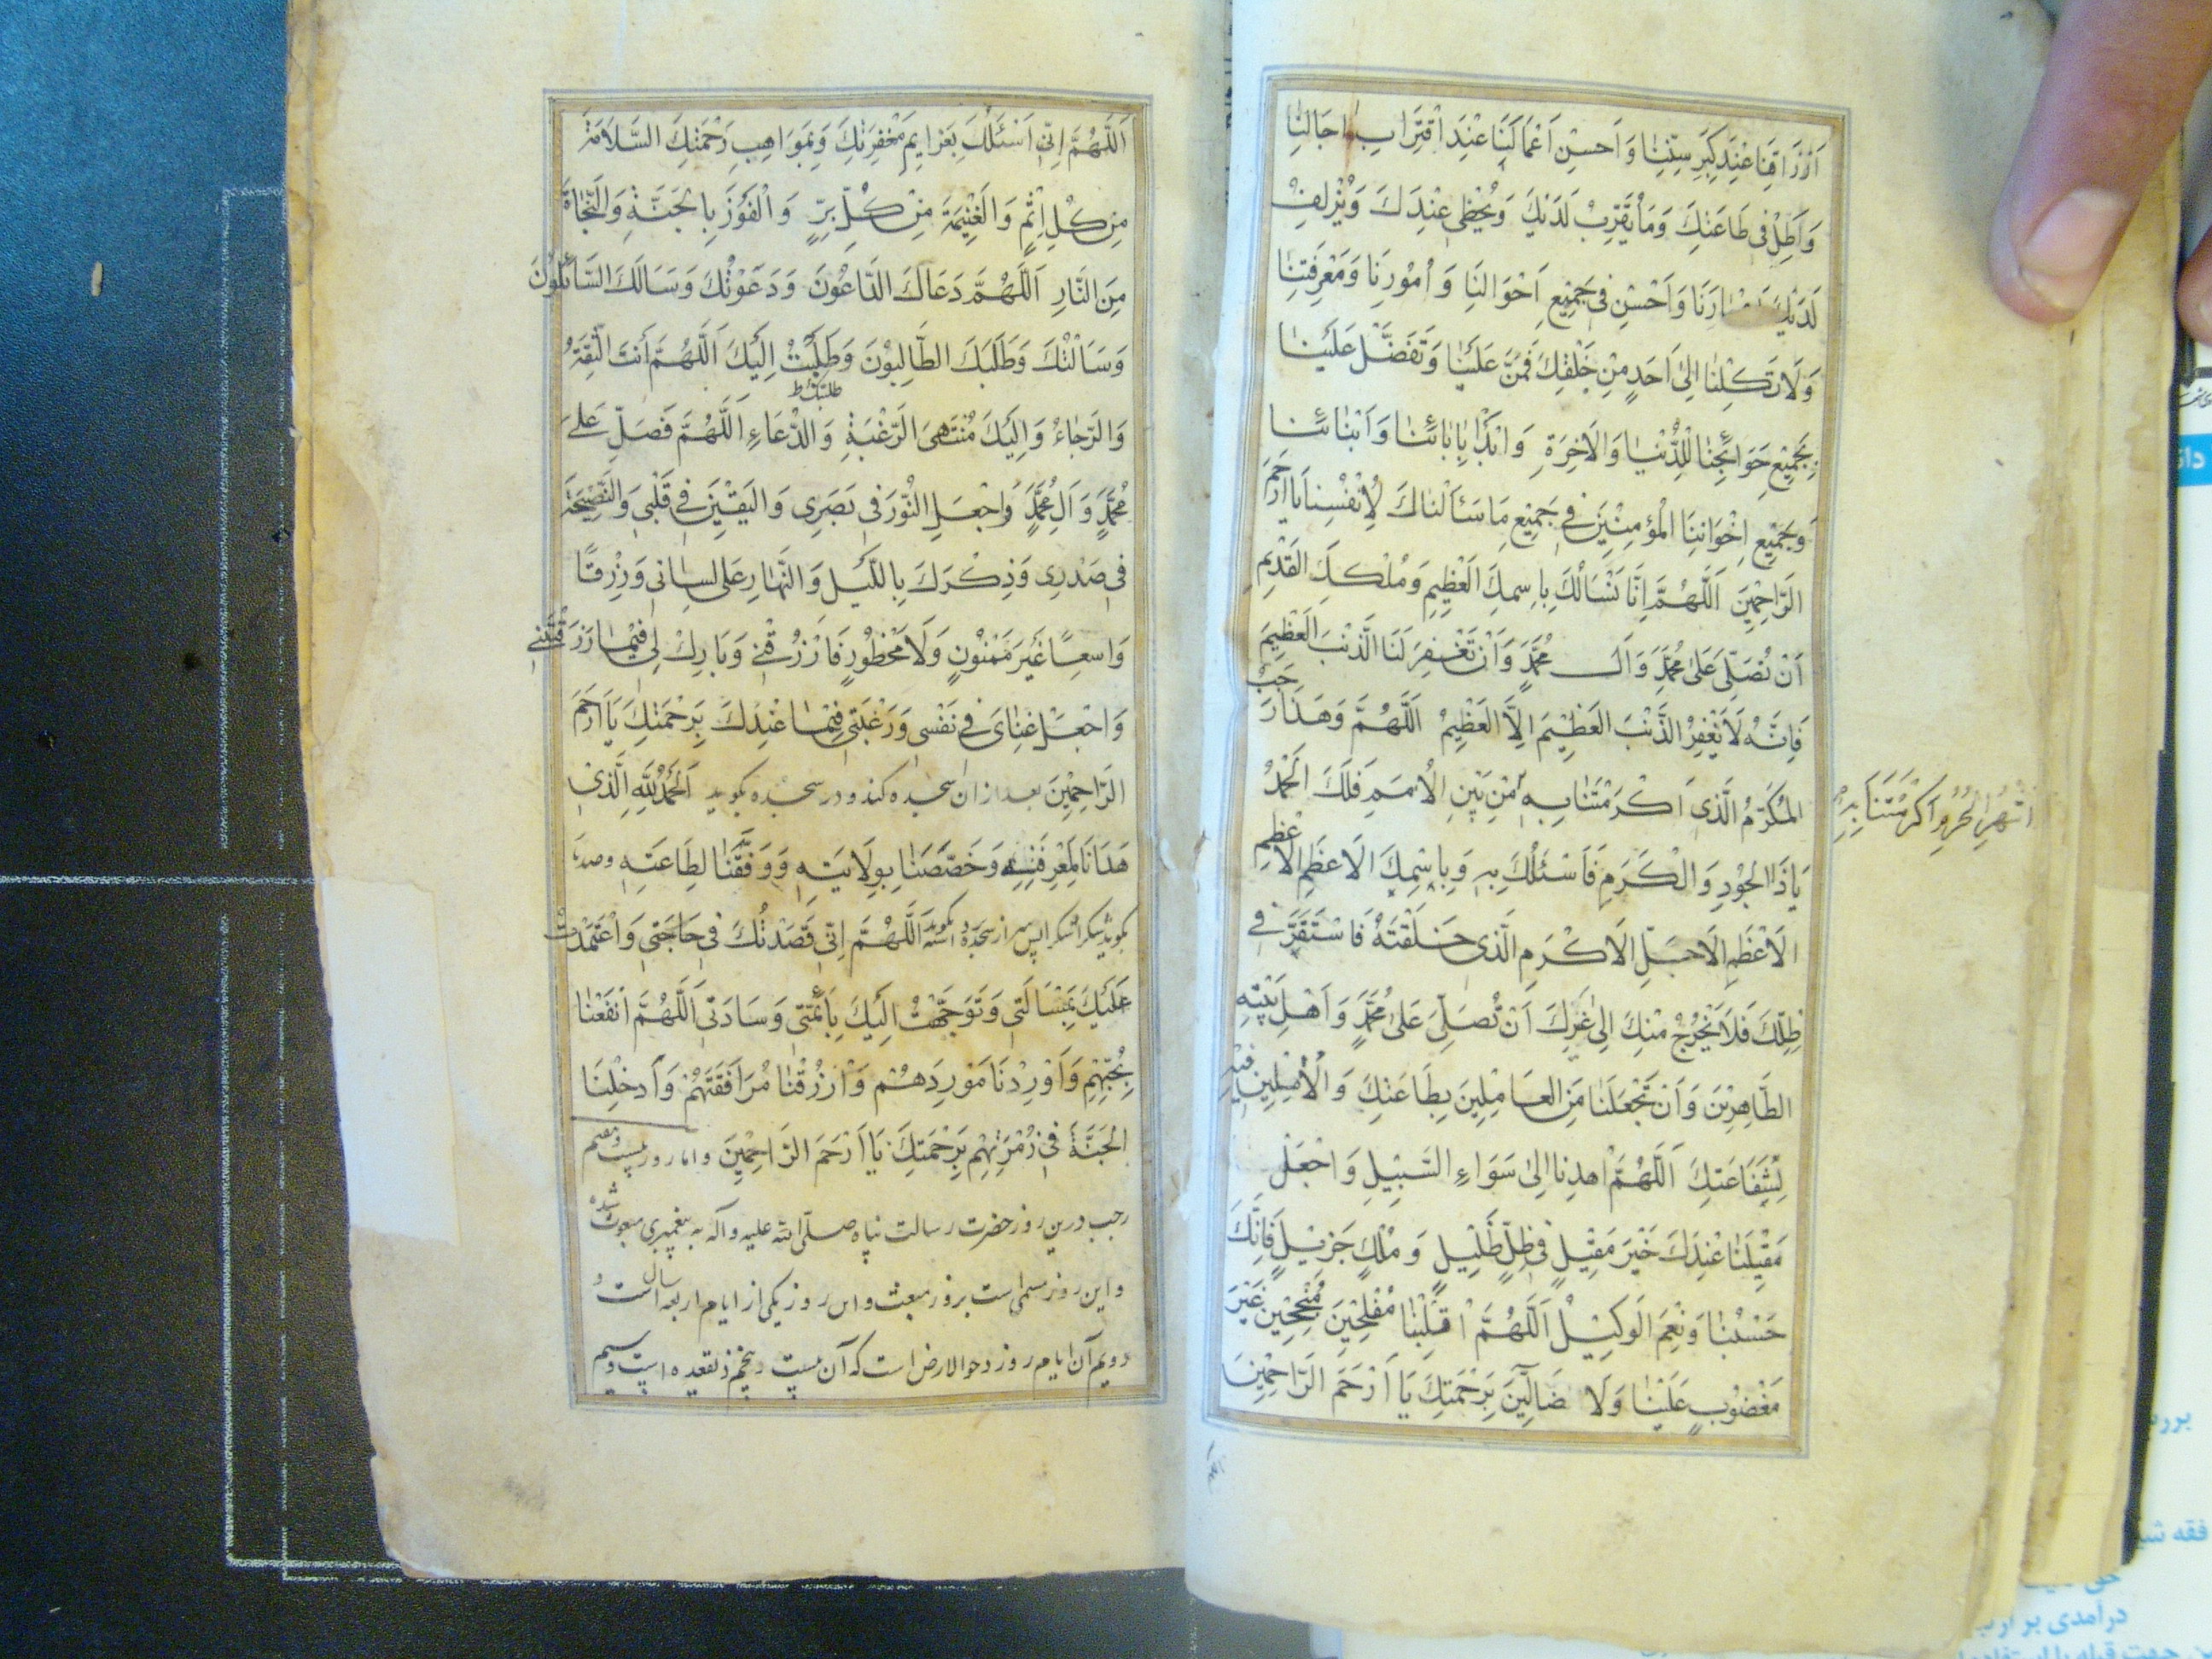 اَرْزَاقِنَا عِنْدَ كِبَرِ سِنِّنَا وَ اَحْسِنْ اَعْمَالَنَا عِنْدَ اقْتِرَابِ اجَالِنَا
وَ اَطِلْ فِى طَاعَتِكَ وَمَا يُقَرِّبُ لَدَيْكَ وَ يُحْظِى عِنْدَكَ وَ يُزْلِفُ
لَدَيْكَ اَعْمَارَنَا وَ اَحْسِنْ فِى جَمِيْعِ اَحْوَالِنَا وَ اُمُوْرِنَا وَ مَعْرِفَتِنَا
وَلَا تَكِلْنَا اِلىٰ اَحَدٍ مِنْ خَلْقِكَ فَمُنَّ عَلَيْنَا وَ تَفَضَّلْ عَلَيْنَا
بِجَمِيْعِ حَوَائِجِنَا لِلدُّنْيَا وَالاخِرَةِ وَ ابْدَأْ بِابَائِنَا وَ اَبْنَائِنَا
وَ بِجَمِيْعِ اِخْوَانِنَا الْمُؤْمِنِيْنَ فِى جَمِيْعِ مَا سَئَالْنَاكَ لِاَنْفُسِنَا يَا اَرْحَمَ
الرَّاحِمِيْنَ اَللَّهُمَّ اِنَّا نَسْاَلُكَ بِاسِمِكَ الْعَظِيْمِ وَ مُلْكِكَ الْقَدِيْمِ
اَنْ تُصَلِّىَ عَلىٰ مُحَمَّدٍ وَ الِ مُحَمَّدٍ وَ اَنْ تَغْفِرَ لَنَا الذَّنْبَ الْعَظِيْمَ
فَاِنَّهُ لَا يَغْفِرُ الذَّنْبَ الْعَظِيْمَ اِلَّا الْعَظِيْمُ اَللَّهُمَّ وَ هَذَا رَجَبٌ
الْمُكَرَّمُ الَّذِى اَكْرَمْتَنَا بِهِ مِنْ بَيْنِ الْاُمَمِ فَلَكَ الْحَمْدُ
يَا ذَا الْجُوْدِ وَ الْكَرَمِ فَاَسْئَلُكَ بِهِ وَ بِاسْمِكَ الْاَعْظَمِ الْاَعْظَمِ
الْاَعْظَمِ الْاَجَلِّ الْاَكْرَمِ الَّذِى خَلَقْتَهُ فَاسْتَقَرَّ فِى
ظِلِّكَ فَلَا يَخْرُجُ مِنْكَ اِلىٰ غَيْرِكَ اَنْ تُصَلِّىَ عَلىٰ مُحَمَّدٍ وَ اَهْلِ بَيْتِهِ
الطَّاهِرِيْنَ وَ اَنْ تَجْعَلَنَا مِنَ الْعَامِلِيْنَ بِطَاعَتِكَ وَ الْاٰمِلِيْنَ فِيْهِ
لِشَفَاعَتِكَ اَللَّهُمَّ اهْدِنَا اِلىٰ سَوَاءِ السَّبِيْلِ وَ اجْعَلْ
مَقِيْلَنَا عِنْدَكَ خَيْرَ مَقِيْلٍ فِى ظِلٍّ ظَلِيْلٍ وَ مُلْكٍ جَزِيْلٍ فَاِنَّكَ
حَسْبُنَا وَ نِعْمَ الْوَكِيْلُ اَللَّهُمَّ اقْلِبْنَا مُفْلِحِيْنَ مُنْجِحِيْنَ غَيْرَ
مَغْضُوْبٍ عَلَيْنَا وَلَا ضَالِّيْنَ بِرَحْمَتِكَ يَا اَرْحَمَ الرَّاحِمِيْنَ
اَللَّهُمَّ اِنِّى اَسْئَلُكَ بِعَزَايِمِ مَغْفِرَتِكَ وَ بِمَوَاهِبِ رَحْمَتِكَ السَّلَامَةَ
مِنْ كُلِّ اِثْمٍ وَ الْغَنِيْمَةَ مِنْ كُلِّ بِرٍّ وَ الْفَوْزَ بِالْجَنَّةِ وَ النَّجَاةَ
مِنَ النَّارِ اَللَّهُمَّ دَعَاكَ الدَّاعُوْنَ وَ دَعَوْتُكَ وَ سَالَكَ السَّائِلُوْنَ
وَ سَالْتُكَ وَ طَلَبَكَ الطَّالِبُوْنَ وَ طَلَبْتُ اِلَيْكَ اَللَّهُمَّ اَنْتَ الثِّقَةُ
طلبتك ط
وَ الرَّجَاءُ وَ اِلَيْكَ مُنْتَهَى الرَّغْبَةِ وَ الدُّعَاءِ اَللَّهُمَّ فَصَلِّ عَلىٰ
مُحَمَّدٍ وَ الِ مُحَمَّدٍ وَ اجْعَلِ النُّوْرَ فِى بَصَرِى وَ الْيَقِيْنَ فِى قَلْبِى وَ النَّصِيْحَةَ
فِى صَدْرِى وَ ذِكْرَكَ بِاللَّيْلِ وَ النَّهَارِ عَلى لِسَانِى وَ رِزْقًا
وَاسِعًا غَيْرَ مَمْنُوْنٍ وَلَا مَحْظُوْرٍ فَارْزُقْنِى وَ بَارِكْ لِى فِيْمَا رَزَقْتَنِى
وَ اجْعَلْ غِنَاىَ فِى نَفْسِى وَ رَغْبَتِى فِيْمَا عِنْدَكَ بِرَحْمَتِكَ يَا اَرْحَمَ
الرَّاحِمِيْنَ بعد از ان سجده كند و در سجده بگويد اَلْحَمْدُ لِلّٰهِ الَّذِىْ
هَدَانَا لِمَعْرِفَتِهِ وَ خَصَّصَنَا بِوِلَايَتِهِ وَ وَفَّقَنَا لِطَاعَتِهِ و صد
بگويد شكرا شكرا پس سر از سجده و بگويد اَللَّهُمَّ اِنِّى قَصَدْتُكَ فِى حَاجَتِى وَ اعْتَمَدْتُ
عَلَيْكَ بِمَسْالَتِى وَ تَوَجَّهْتُ اِلَيْكَ بِاَئِمَّتِى وَ سَادَتِى اَللَّهُمَّ انْفَعْنَا
بِحُبِّهِمْ وَ اَوْرِدْنَا مَوْرِدَهُمْ وَ ارْزُقْنَا مُرَافَقَتَهُمْ وَ اَدْخِلْنَا
الْجَنَّةَ فِى زُمْرَتِهِمْ بِرَحْمَتِكَ يَا اَرْحَمَ الرَّاحِمِيْنَ و اما روز بيست و هفتم
رجب درين روز حضرت رسالت پناه صلّى الله عليه و آله به پيغمبرى مبعوث شده
و اين روز مسمى است بروز مبعث و اين روز يكى از ايام اربعه سال است و
دويم آن ايام روز دحو الارض است كه آن بيست و پنجم ذيقعده است و سيم